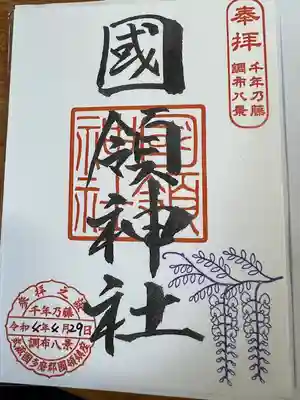 奉拝
千年乃藤
調布八景
國領神社
國領神社
参拝之証
千年乃藤
令和4年4月29日
調布八景
武蔵國多磨郡國領鎮座